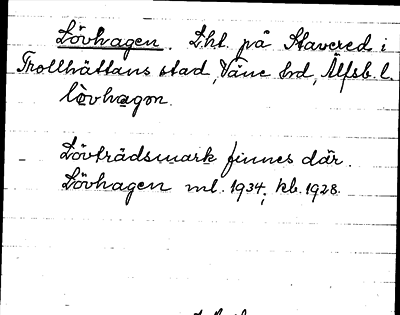 Lövhagen. Lht. på Stavered i
Trollhättans stad, Väne hd, Älfsb. l.
lòvhagɷn.
Lövträdsmark finnes där.
Lövhagen ml. 1934; kb. 1928.